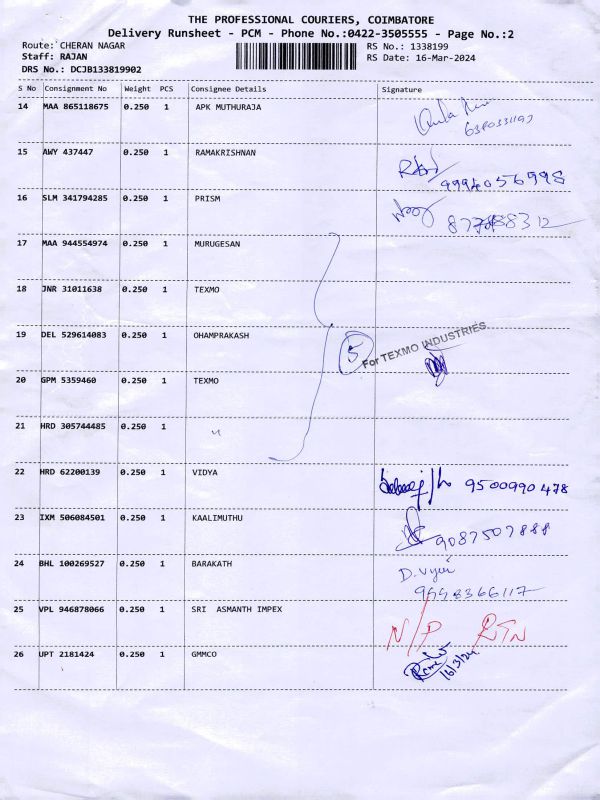 THE PROFESSIONAL COURIERS, COIMBATORE
Delivery Runsheet - PCM - Phone No.:0422-3505555 - Page No.:2
Route: CHERAN NAGAR RS No.: 1338199
Staff: RAJAN RS Date: 16-Mar-2024
DRS No.: DCJB133819902
S No Consignment No Weight PCS Consignee Details Signature
14 MAA 865118675 0.250 1 APK MUTHURAJA
15 AWY 437447 0.250 1 RAMAKRISHNAN
9994056998
16 SLM 341794285 0.250 1 PRISM
17 MAA 944554974 0.250 1 MURUGESAN
18 JNR 31011638 0.250 1 TEXMO
19 DEL 529614083 0.250 1 OHAMPRAKASH
5 For TEXMO INDUSTRIES
20 GPM 5359460 0.250 1 TEXMO
21 HRD 305744485 0.250 1 "
22 HRD 62200139 0.250 1 VIDYA 9500990478
23 IXM 506084501 0.250 1 KAALIMUTHU
9087507888
24 BHL 100269527 0.250 1 BARAKATH
25 VPL 946878066 0.250 1 SRI ASMANTH IMPEX
N/P RTN
26 UPT 2181424 0.250 1 GMMCO
16/3/24